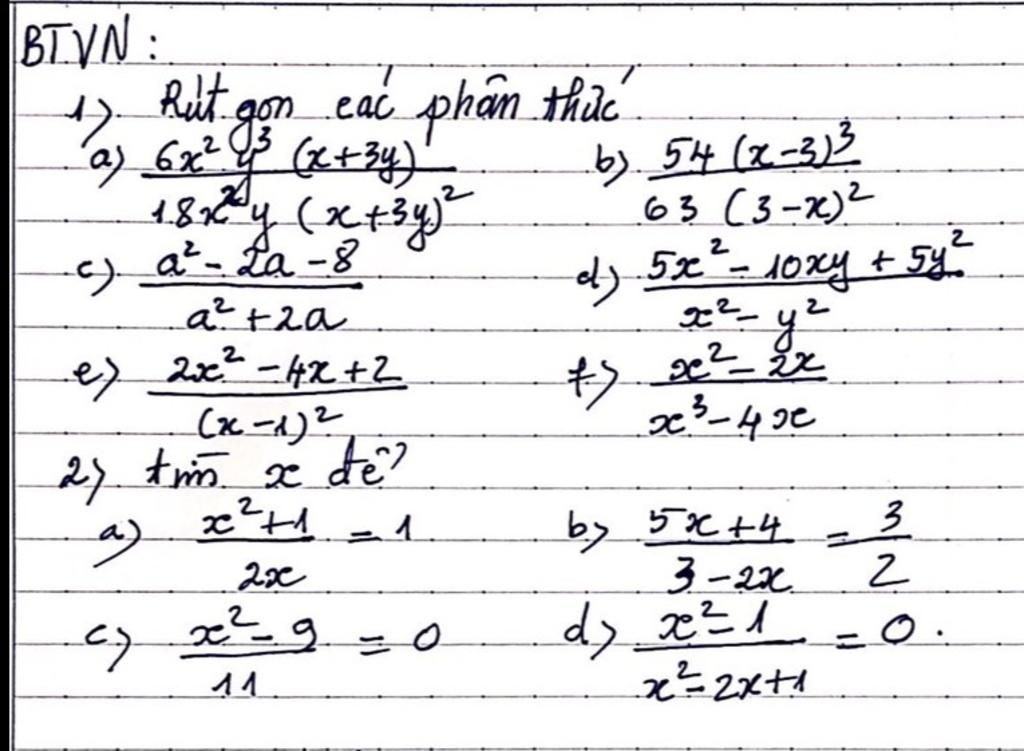 BTVN :
1) Rút gọn các phân thức
a) \frac{6x^2 y^3 (x+3y)}{18x^2 y (x+3y)^2} b) \frac{54 (x-3)^3}{63 (3-x)^2}
c) \frac{a^2 - 2a - 8}{a^2 + 2a} d) \frac{5x^2 - 10xy + 5y^2}{x^2 - y^2}
e) \frac{2x^2 - 4x + 2}{(x-1)^2} f) \frac{x^2 - 2x}{x^3 - 4x}
2) tìm x để
a) \frac{x^2+1}{2x} = 1 b) \frac{5x+4}{3-2x} = \frac{3}{2}
c) \frac{x^2 - 9}{11} = 0 d) \frac{x^2 - 1}{x^2 - 2x + 1} = 0.